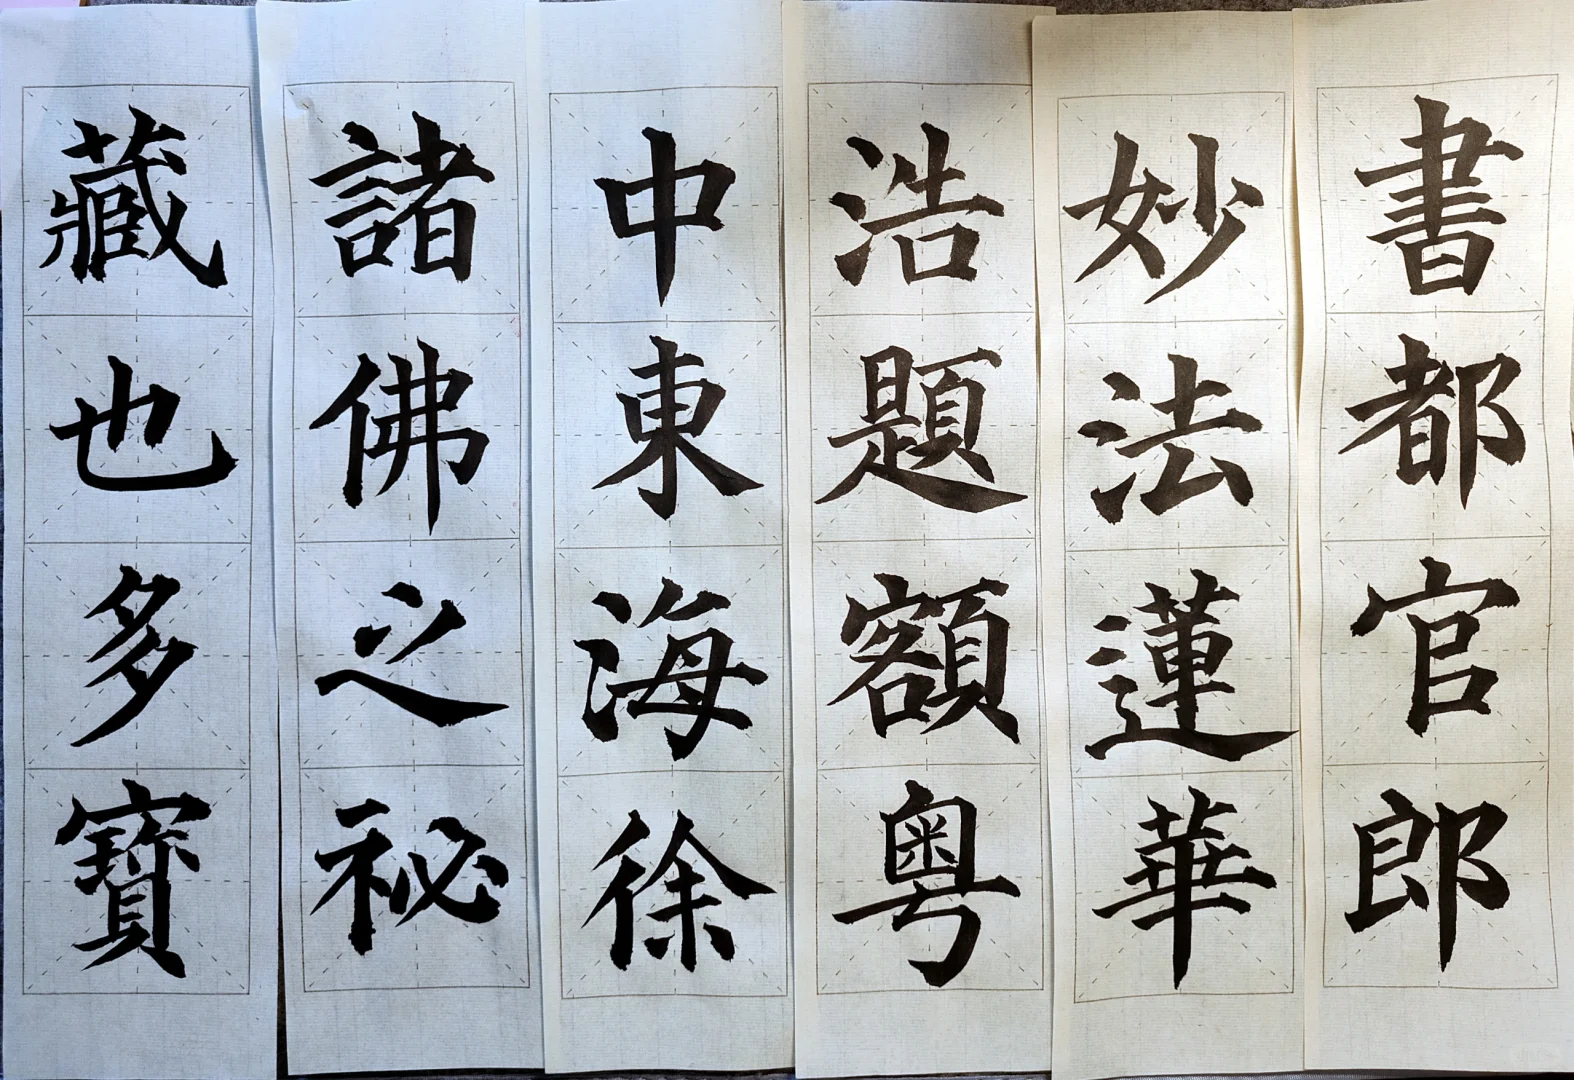 書都官郎
妙法蓮華
浩題額粤
中東海徐
諸佛之祕
藏也多寶